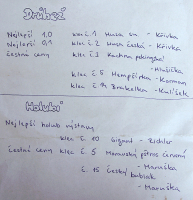 Drůbež
Nejlepší 1,0 klec č. 1 Husa sv. - Křivka
Nejlepší 0,1 klec č. 2 Husa česká - Křivka
čestné ceny klec č. 1 Kachna pekingská
- Hrubička
klec č. 5 Hempšírka - Korman
klec č. 14 Brakelka - Kulíšek
Holubi
Nejlepší holub výstavy
klec č. 10 Gigant - Richter
čestné ceny klec č. 5 Moravský pštros červený
- Maruška
č. 15 český bublák -
Maruška